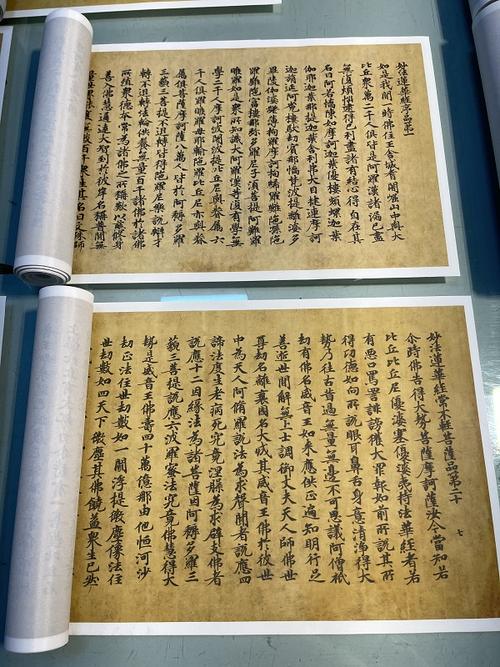 妙法蓮華經序品第一
如是我聞一時佛住王舍城耆闍崛山中與大
比丘衆萬二千人俱皆是阿羅漢諸漏已盡
無復煩惱逮得己利盡諸有結心得自在其
名曰阿若憍陳如摩訶迦葉優樓頻螺迦葉
伽耶迦葉那提迦葉舍利弗大目揵連摩訶
迦旃延阿㝹樓馱劫賓那憍梵波提離婆多
畢陵伽婆蹉薄拘羅摩訶拘絺羅難陀孫陀
羅難陀富樓那彌多羅尼子須菩提阿難羅
睺羅如是衆所知識大阿羅漢等復有學無
學二千人摩訶波闍波提比丘尼與眷屬六
千人俱羅睺羅母耶輸陀羅比丘尼亦與眷
屬俱菩薩摩訶薩八萬人皆於阿耨多羅
三藐三菩提不退轉皆得陀羅尼樂說辯才
轉不退轉法輪供養無量百千諸佛於諸佛
所殖衆德本常為諸佛之所稱歎以慈修身
善入佛慧通達大智到於彼岸名稱普聞無
量世界能度無數百千衆生其名曰文殊師
妙法蓮華經常不輕菩薩品第二十
七
尒時佛告得大勢菩薩摩訶薩汝今當知若
比丘比丘尼優婆塞優婆夷持法華經者若
有惡口罵詈誹謗獲大罪報如前所說其所
得功德如向所說眼耳鼻舌身意清淨得大
勢乃往古昔過無量無邊不可思議阿僧祇
劫有佛名威音王如來應供正遍知明行足
善逝世間解無上士調御丈夫天人師佛世
尊劫名離衰國名大成其威音王佛於彼世
中為天人阿脩羅說法為求聲聞者說應四
諦法度生老病死究竟涅槃為求辟支佛者
說應十二因緣法為諸菩薩因阿耨多羅三
藐三菩提說應六波羅蜜法究竟佛慧得大
勢是威音王佛壽四十萬億那由他恒河沙
劫正法住世劫數如一閻浮提微塵像法住
世劫數如四天下微塵其佛饒益衆生已然